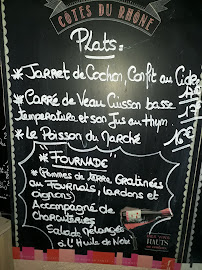 CÔTES DU RHÔNE
Plats :
* Jarret de Cochon, Confit au Cidre
* Carré de Veau Cuisson basse
Température et son Jus au Thym.
* Le Poisson du Marché
* "FOURNADE"
* (Pommes de terre Gratinées
au Fournols, lardons et
oignons)
Accompagné de
charcuteries
Salade Mélangée
à l'Huile de Noix
HAUTS